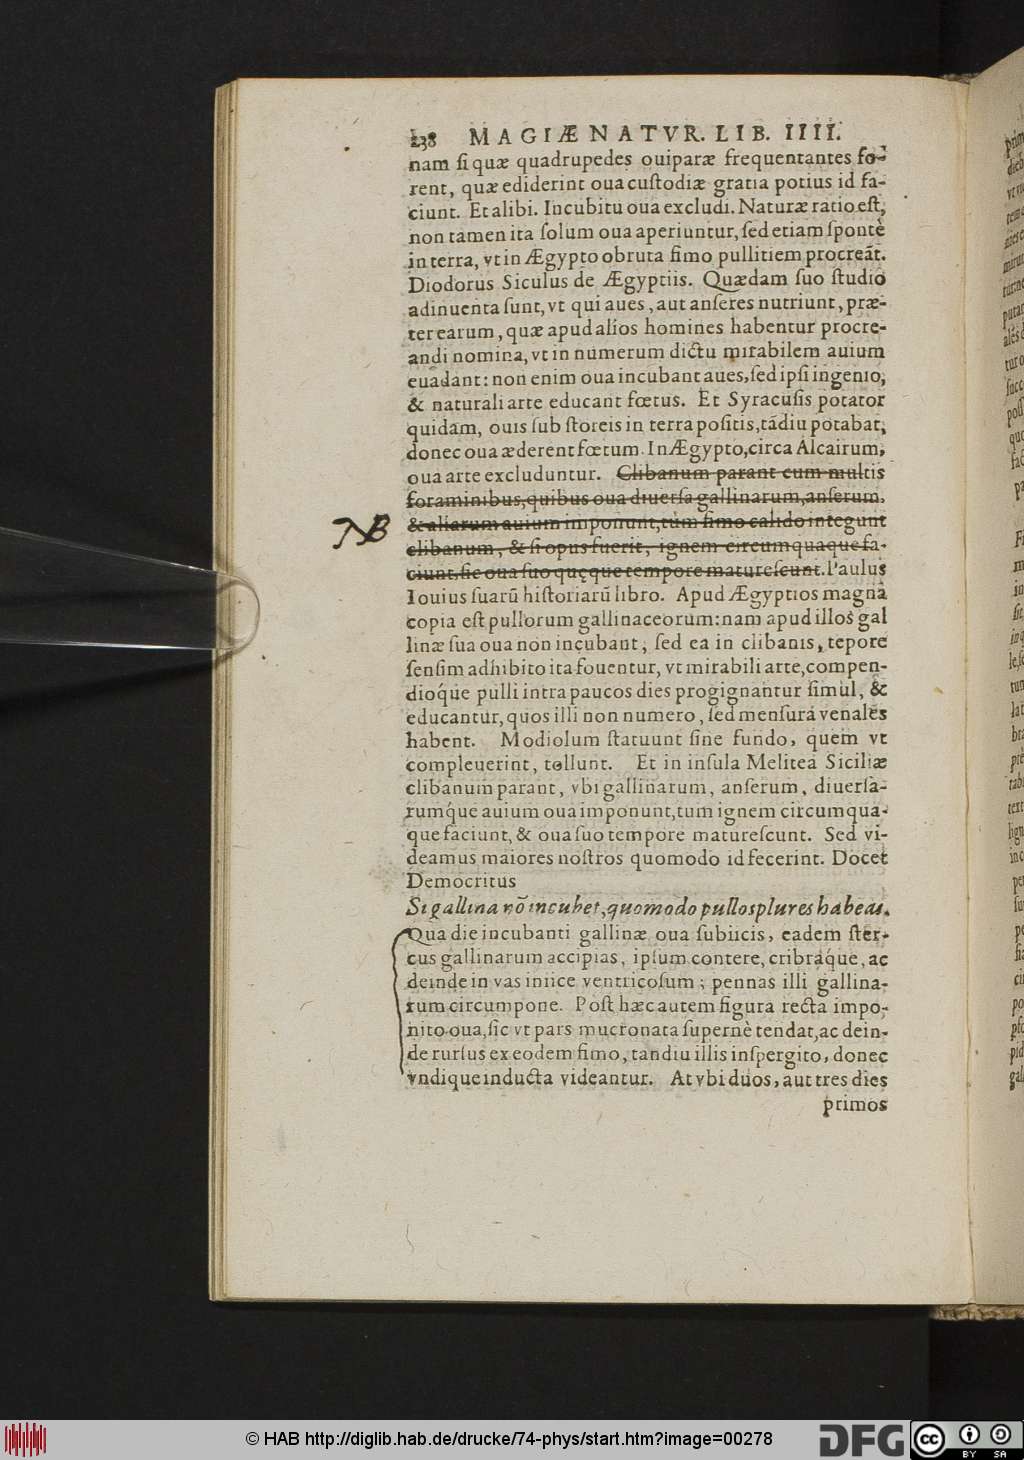 238 MAGIÆ NATVR. LIB. IIII.
nam ſi quæ quadrupedes ouiparæ frequentantes fo-
rent, quæ ediderint oua cuſtodiæ gratia potius id fa-
ciunt. Et alibi. Incubitu oua excludi. Naturæ ratio eſt,
non tamen ita ſolum oua aperiuntur, ſed etiam ſpontè
in terra, vt in Ægypto obruta fimo pullitiem procreãt.
Diodorus Siculus de Ægyptiis. Quædam ſuo ſtudio
adinuenta ſunt, vt qui aues, aut anſeres nutriunt, præ-
ter earum, quæ apud alios homines habentur procre-
andi nomina, vt in numerum dictu mirabilem auium
euadant: non enim oua incubant aues, ſed ipſi ingenio,
& naturali arte educant fœtus. Et Syracuſis potator
quidam, ouis ſub ſtoreis in terra poſitis, tãdiu potabat,
donec oua æderent fœtum. In Ægypto, circa Alcairum,
oua arte excluduntur. Clibanum parant cum multis
foraminibus, quibus oua diuerſa gallinarum, anſerum,
NB
& aliarum auium imponunt, tùm fimo calido integunt
clibanum, & ſi opus fuerit, ignem circumquaque fa-
ciunt, ſic oua ſuo quęque tempore matureſcunt. Paulus
Iouius ſuarũ hiſtoriarũ libro. Apud Ægyptios magna
copia eſt pullorum gallinaceorum: nam apud illos gal
linæ ſua oua non incubant, ſed ea in clibanis, tepore
ſenſim adhibito ita fouentur, vt mirabili arte, compen-
dioq́ue pulli intra paucos dies progignantur ſimul, &
educantur, quos illi non numero, ſed menſura venales
habent. Modiolum ſtatuunt ſine fundo, quem vt
compleuerint, tollunt. Et in inſula Melitea Siciliæ
clibanum parant, vbi gallinarum, anſerum, diuerſa-
rumq́ue auium oua imponunt, tum ignem circumqua-
que faciunt, & oua ſuo tempore matureſcunt. Sed vi-
deamus maiores noſtros quomodo id fecerint. Docet
Democritus
Si gallina nõ incubet, quomodo pullos plures habeas.
Qua die incubanti gallinæ oua ſubiicis, eadem ſter-
cus gallinarum accipias, ipſum contere, cribráq́ue, ac
deinde in vas iniice ventricoſum; pennas illi gallina-
rum circumpone. Poſt hæc autem figura recta impo-
nito oua, ſic vt pars mucronata ſupernè tendat, ac dein-
de rurſus ex eodem fimo, tandiu illis inſpergito, donec
vndique inducta videantur. At vbi duos, aut tres dies
primos
© HAB http://diglib.hab.de/drucke/74-phys/start.htm?image=00278
DFG
cc BY SA